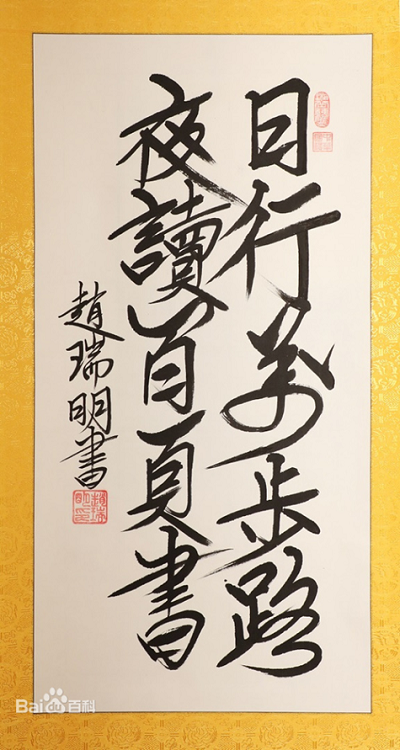 日行萬步路
夜讀百頁書
趙瑞明書
Bai du 百科